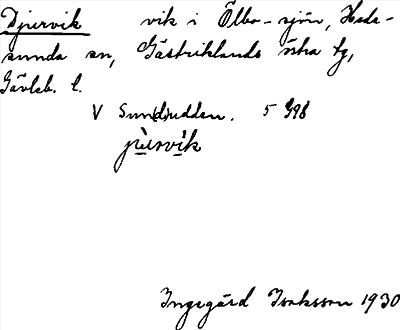 Djurvik vik i Ölbo-sjön, Heda-
sunda sn, Gästriklands östra tg,
Gävleb. l.
V Sundudden. 5 998
jùrvìk
Ingegärd Isaksson 1930